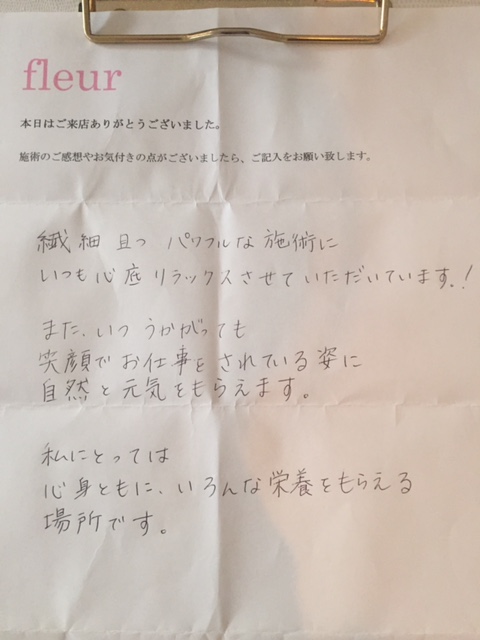 fleur
本日はご来店ありがとうございました。
施術のご感想やお気付きの点がございましたら、ご記入をお願い致します。
繊細且つ パワフルな施術に
いつも心底リラックスさせていただいています!
また、いつうかがっても
笑顔でお仕事をされている姿に
自然と元気をもらえます。
私にとっては
心身ともに、いろんな栄養をもらえる
場所です。